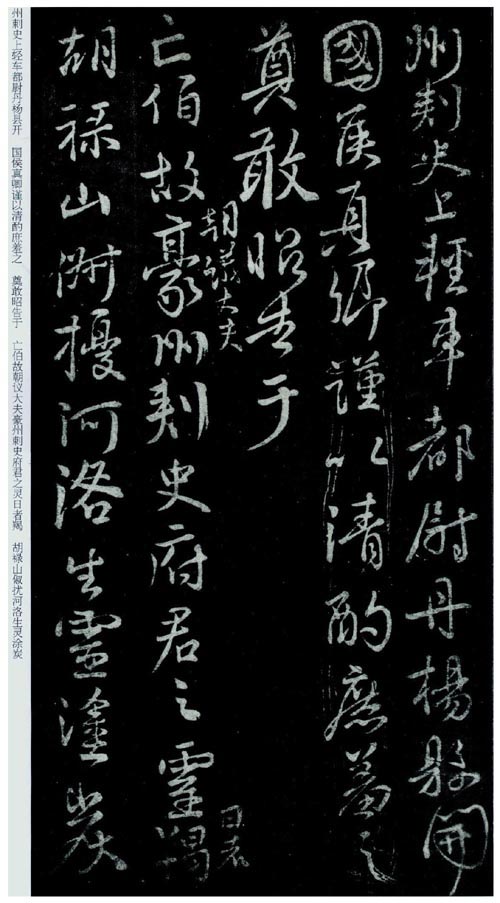 州刾史上輕車都尉丹楊縣開
國侯真卿謹以清酌庶羞之
奠敢昭告于
朝議大夫
亡伯故豪州刾史府君之靈羯
日者
胡祿山俶擾河洛生靈塗炭
州刺史上经车都尉丹杨县开 国侯真卿谨以清酌庶羞之 奠敢昭告于 亡伯故朝议大夫豪州刺史府君之灵日者羯 胡禄山俶扰河洛生灵涂炭